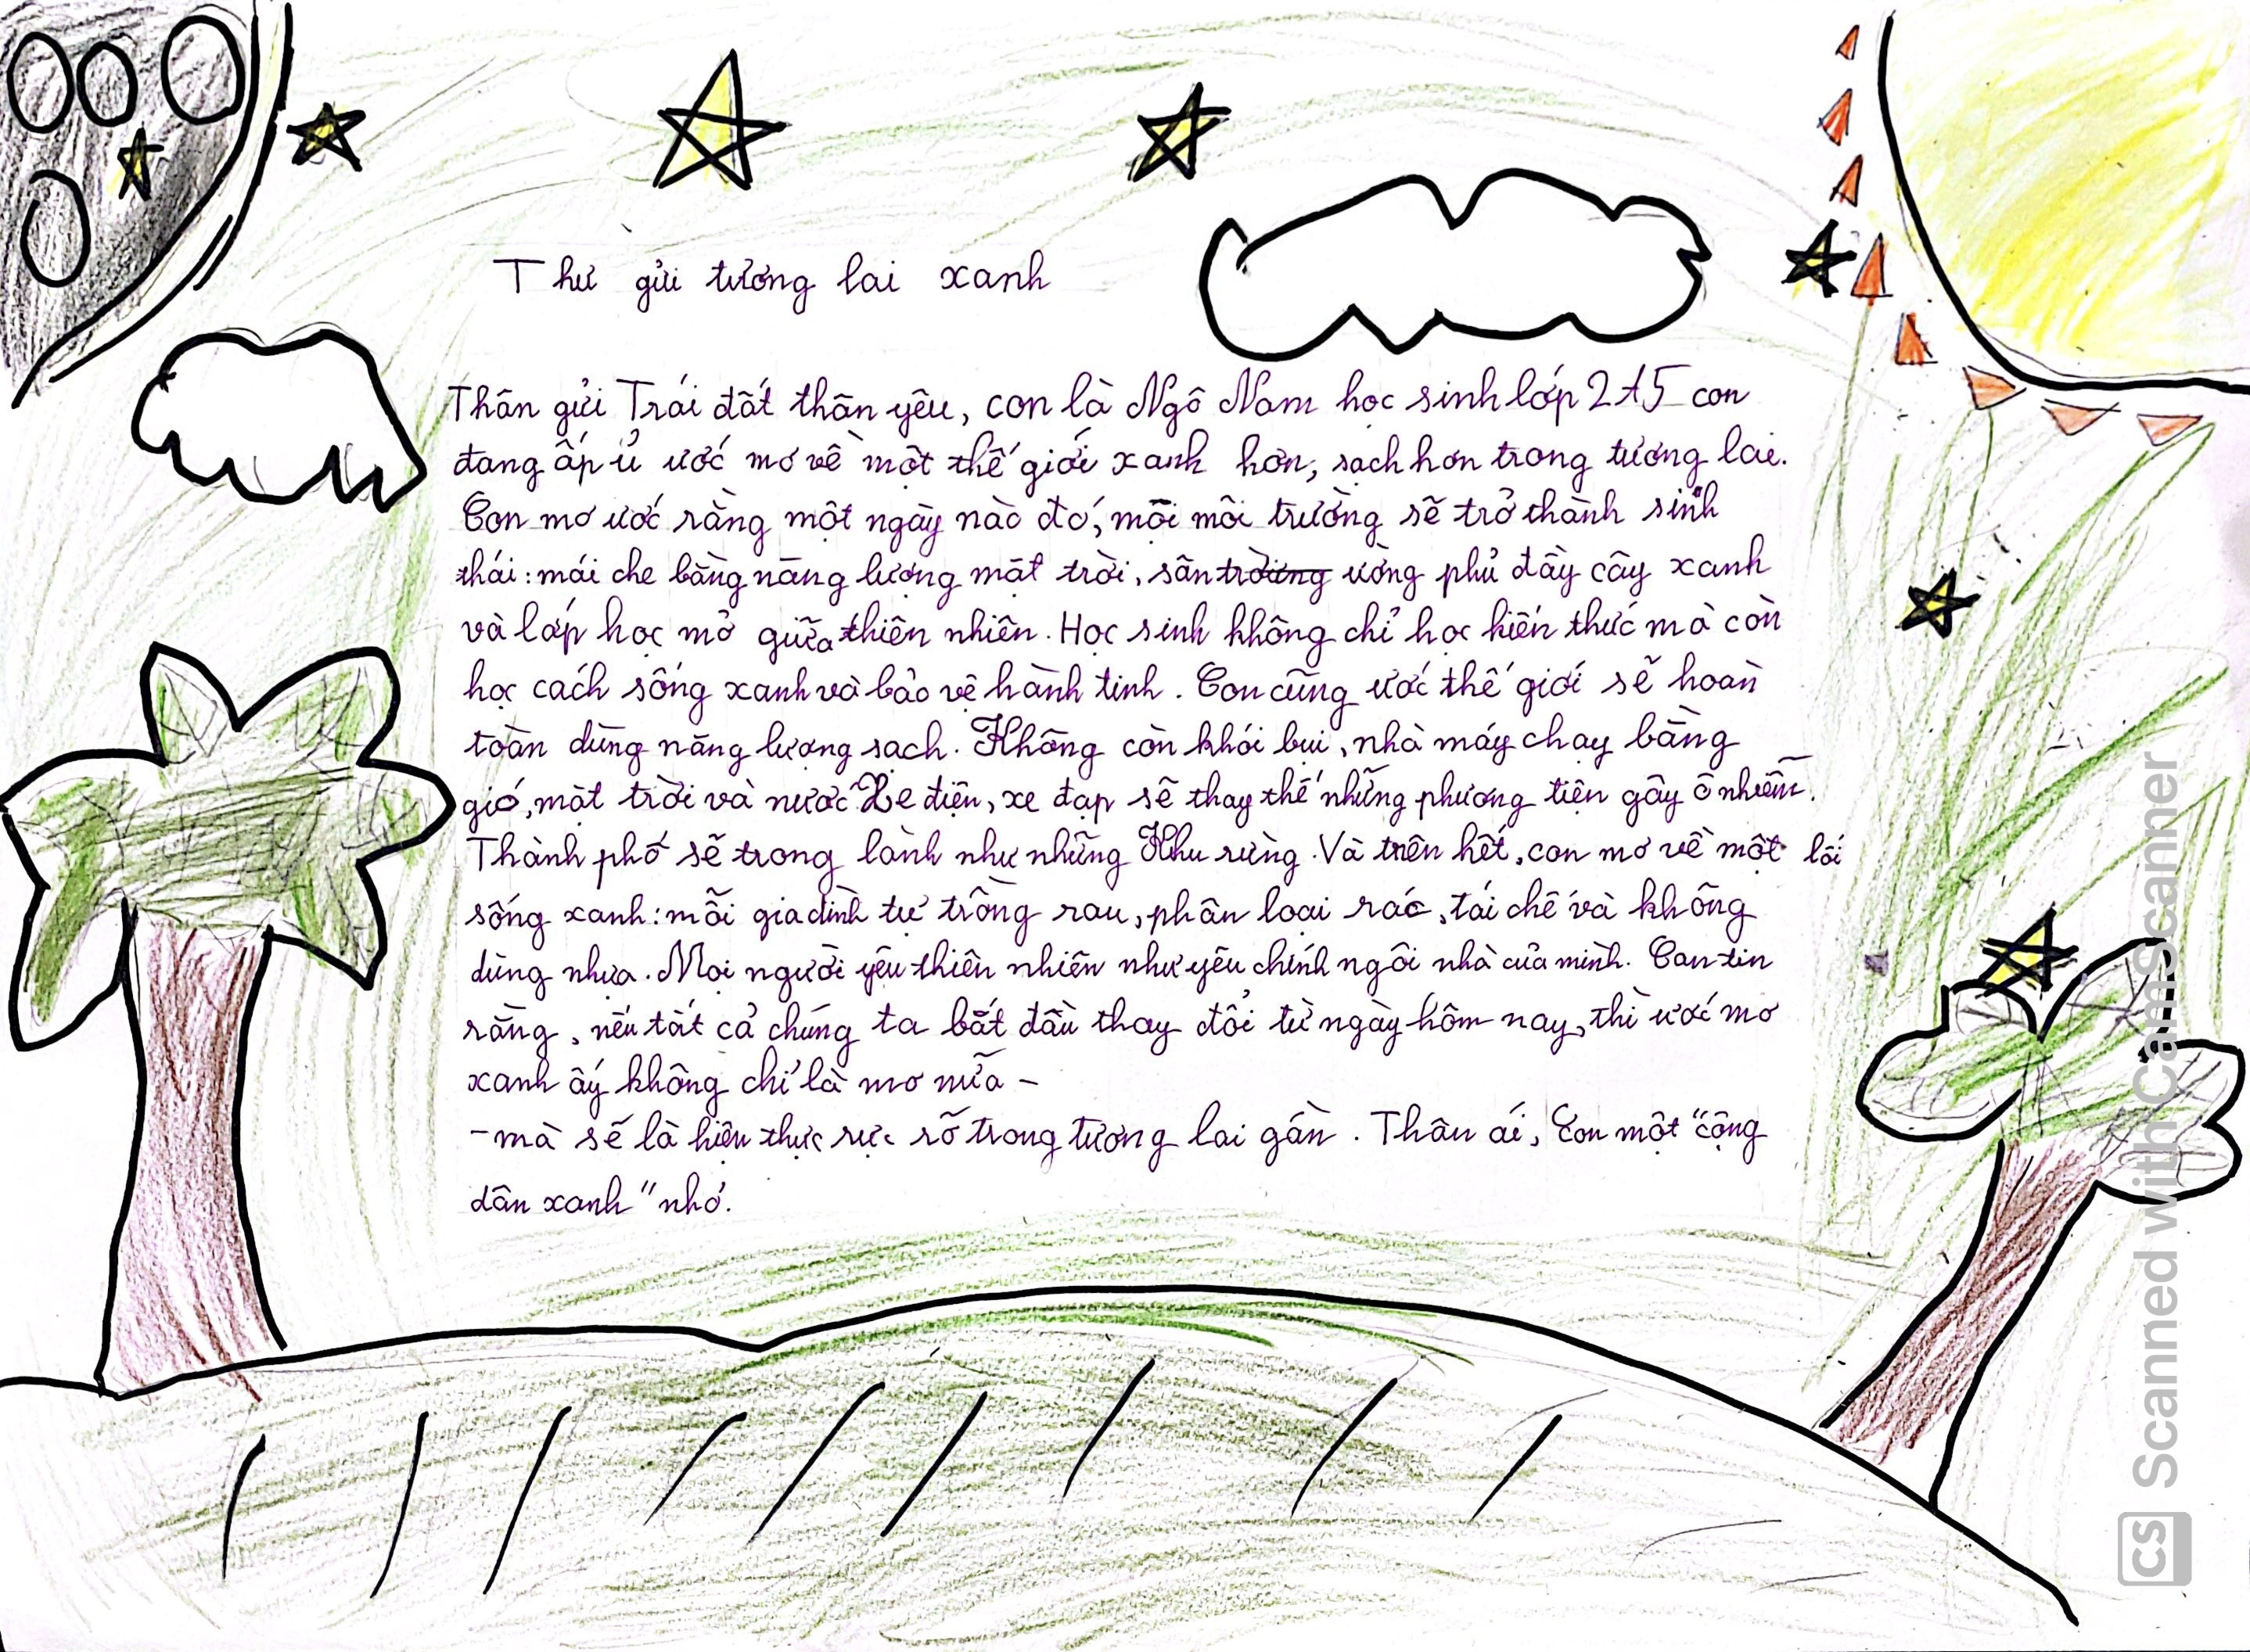 Thư gửi tương lai xanh
Thân gửi Trái đất thân yêu, con là Ngô Nam học sinh lớp 2A5 con
đang ấp ủ ước mơ về một thế giới xanh hơn, sạch hơn trong tương lai.
Con mơ ước rằng một ngày nào đó, mỗi môi trường sẽ trở thành sinh
thái: mái che bằng năng lượng mặt trời, sân trường ường phủ đầy cây xanh
và lớp học mở giữa thiên nhiên. Học sinh không chỉ học kiến thức mà còn
học cách sống xanh và bảo vệ hành tinh. Con cũng ước thế giới sẽ hoàn
toàn dùng năng lượng sạch. Không còn khói bụi, nhà máy chạy bằng
gió, mặt trời và nước Xe điện, xe đạp sẽ thay thế những phương tiện gây ô nhiễm.
Thành phố sẽ trong lành như những Khu rừng. Và trên hết, con mơ về một lối
sống xanh: mỗi gia đình tự trồng rau, phân loại rác, tái chế và không
dùng nhựa. Mọi người yêu thiên nhiên như yêu chính ngôi nhà của mình. Con tin
rằng, nếu tất cả chúng ta bắt đầu thay đổi từ ngày hôm nay, thì ước mơ
xanh ấy không chỉ là mơ nữa -
- mà sẽ là hiện thực rực rỡ trong tương lai gần. Thân ái, Con một "công
dân xanh" nhỏ.
CS Scanned with CamScanner